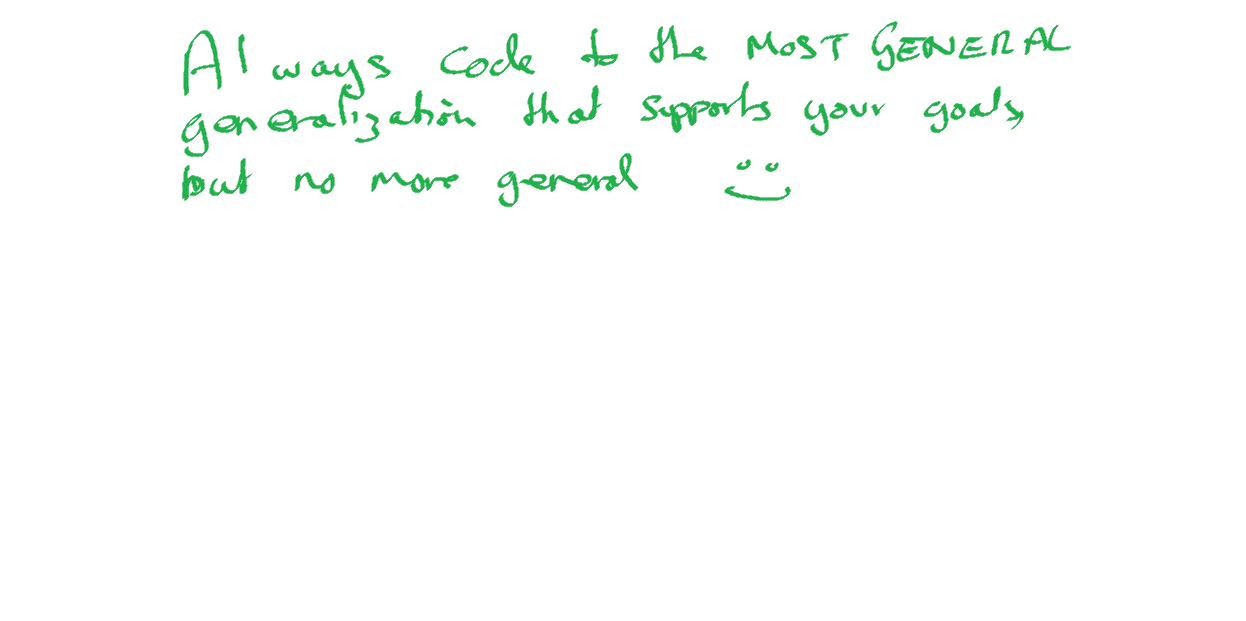 Always code to the MOST GENERAL
generalization that supports your goals,
but no more general